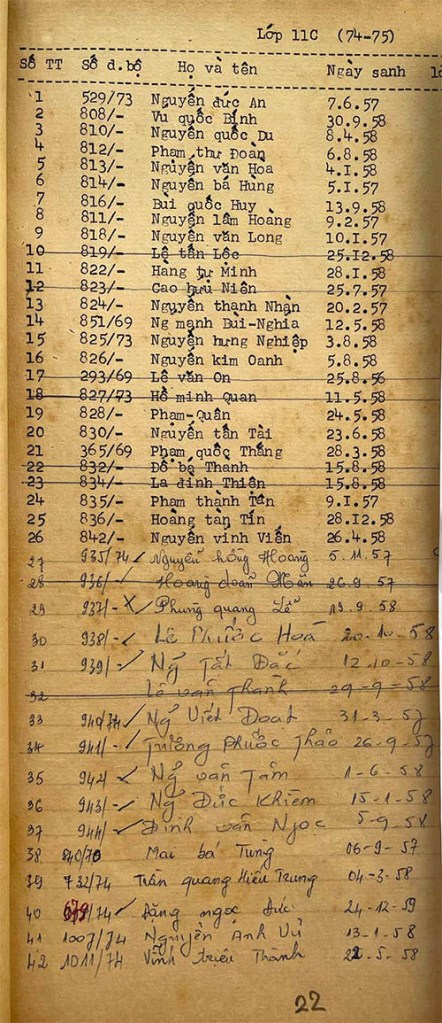 Lớp 11C (74-75)
Số TT Số d.bộ Họ và tên Ngày sanh
1 529/73 Nguyễn đức An 7.6.57
2 808/- Vu quốc Bỉnh 30.9.58
3 810/- Nguyễn quốc Du 8.4.58
4 812/- Phạm thư Đoàn 6.8.58
5 813/- Nguyễn văn Hoa 4.I.58
6 814/- Nguyễn bá Hùng 5.I.57
7 816/- Bùi quốc Huy 13.9.58
8 811/- Nguyễn lâm Hoàng 9.2.57
9 818/- Nguyễn văn Long 10.I.57
10 819/- Lê tấn Lôc 25.I2.58
11 822/- Hàng tự Minh 28.I.58
12 823/- Cao hữu Niên 25.7.57
13 824/- Nguyễn thanh Nhàn 20.2.57
14 851/69 Ng mạnh Bùi-Nghia 12.5.58
15 825/73 Nguyễn hưng Nghiệp 3.8.58
16 826/- Nguyễn kim Oanh 5.8.58
17 293/69 Lê văn On 25.8.56
18 827/73 Hồ minh Quan 11.5.58
19 828/- Phạm-Quân 24.5.58
20 830/- Nguyễn tấn Tài 23.6.58
21 365/69 Phạm quốc Thắng 28.3.58
22 832/- Đổ bá Thanh 15.8.58
23 834/- La đình Thiên 15.8.58
24 835/- Phạm thành Tấn 9.I.57
25 836/- Hoàng tàn Tín 28.I2.58
26 842/- Nguyễn vinh Viễn 26.4.58
27 935/74 Nguyễn hồng Hoang 5.11.57
28 936/- Hoang doãn Mẫn 26.9.57
29 937/- X Phung quang Lễ 19.9.58
30 938/- Lê Phước Hoá 20-10-58
31 939/- Ng Tất Đắc 12-10-58
32 Lê văn Thanh 29-9-58
33 940/74 Ng Viết Đoat 31-3-57
34 941/- Trương Phước Thảo 26-9-57
35 942/- Ng văn Tâm 1-6-58
36 943/- Ng Đức Khiêm 15-1-58
37 944/- Đinh văn Ngọc 5-9-58
38 840/70 Mai bá Tùng 06-9-57
39 732/74 Trần quang Hiếu Trung 04-3-58
40 /74 Đặng ngọc Đức 24-12-59
41 1007/74 Nguyễn Anh Vũ 13-1-58
42 1011/74 Vĩnh triệu Thành 22-5-58
22